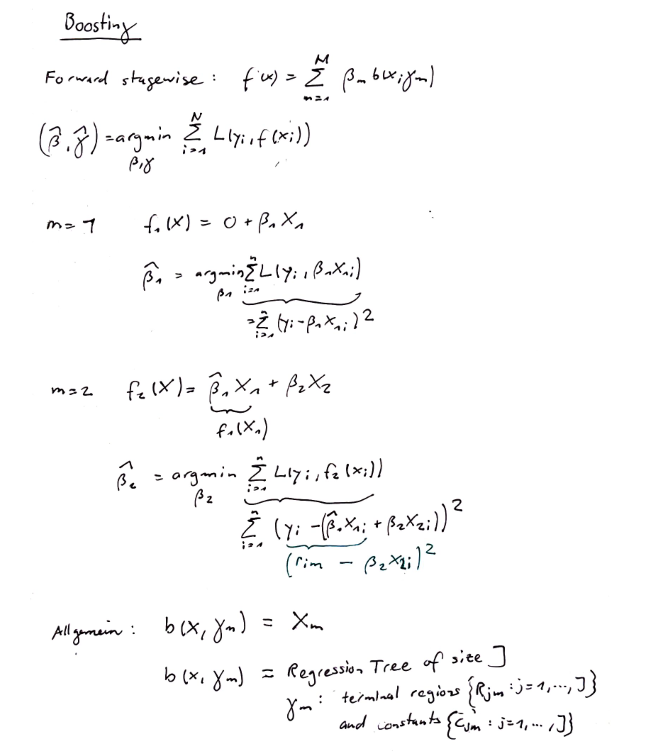 Boosting
Forward stagewise : f(x) = Σ_{m=1}^{M} β_m b(x; γ_m)
(β̂, γ̂) = argmin_{β,γ} Σ_{i=1}^{N} L(y_i, f(x_i))
m=1 f_1(X) = 0 + β_1 X_1
β̂_1 = argmin_{β_1} Σ_{i=1}^{n} L(y_i, β_1 X_{1i})
= Σ_{i=1}^{n} (y_i - β_1 X_{1i})^2
m=2 f_2(X) = β̂_1 X_1 + β_2 X_2
f_1(X_1)
β̂_2 = argmin_{β_2} Σ_{i=1}^{n} L(y_i, f_2(x_i))
Σ_{i=1}^{n} (y_i - (β̂_1 X_{1i} + β_2 X_{2i}))^2
(r_{im} - β_2 X_{2i})^2
Allgemein : b(x, γ_m) = X_m
b(x, γ_m) = Regression Tree of size J
γ_m : terminal regions {R_{jm} : j=1, ..., J}
and constants {c_{jm} : j=1, ..., J}